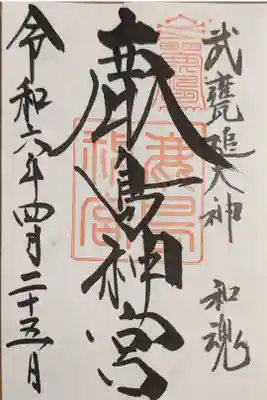 武甕槌大神 和魂
鹿島神宮
令和六年四月二十五日